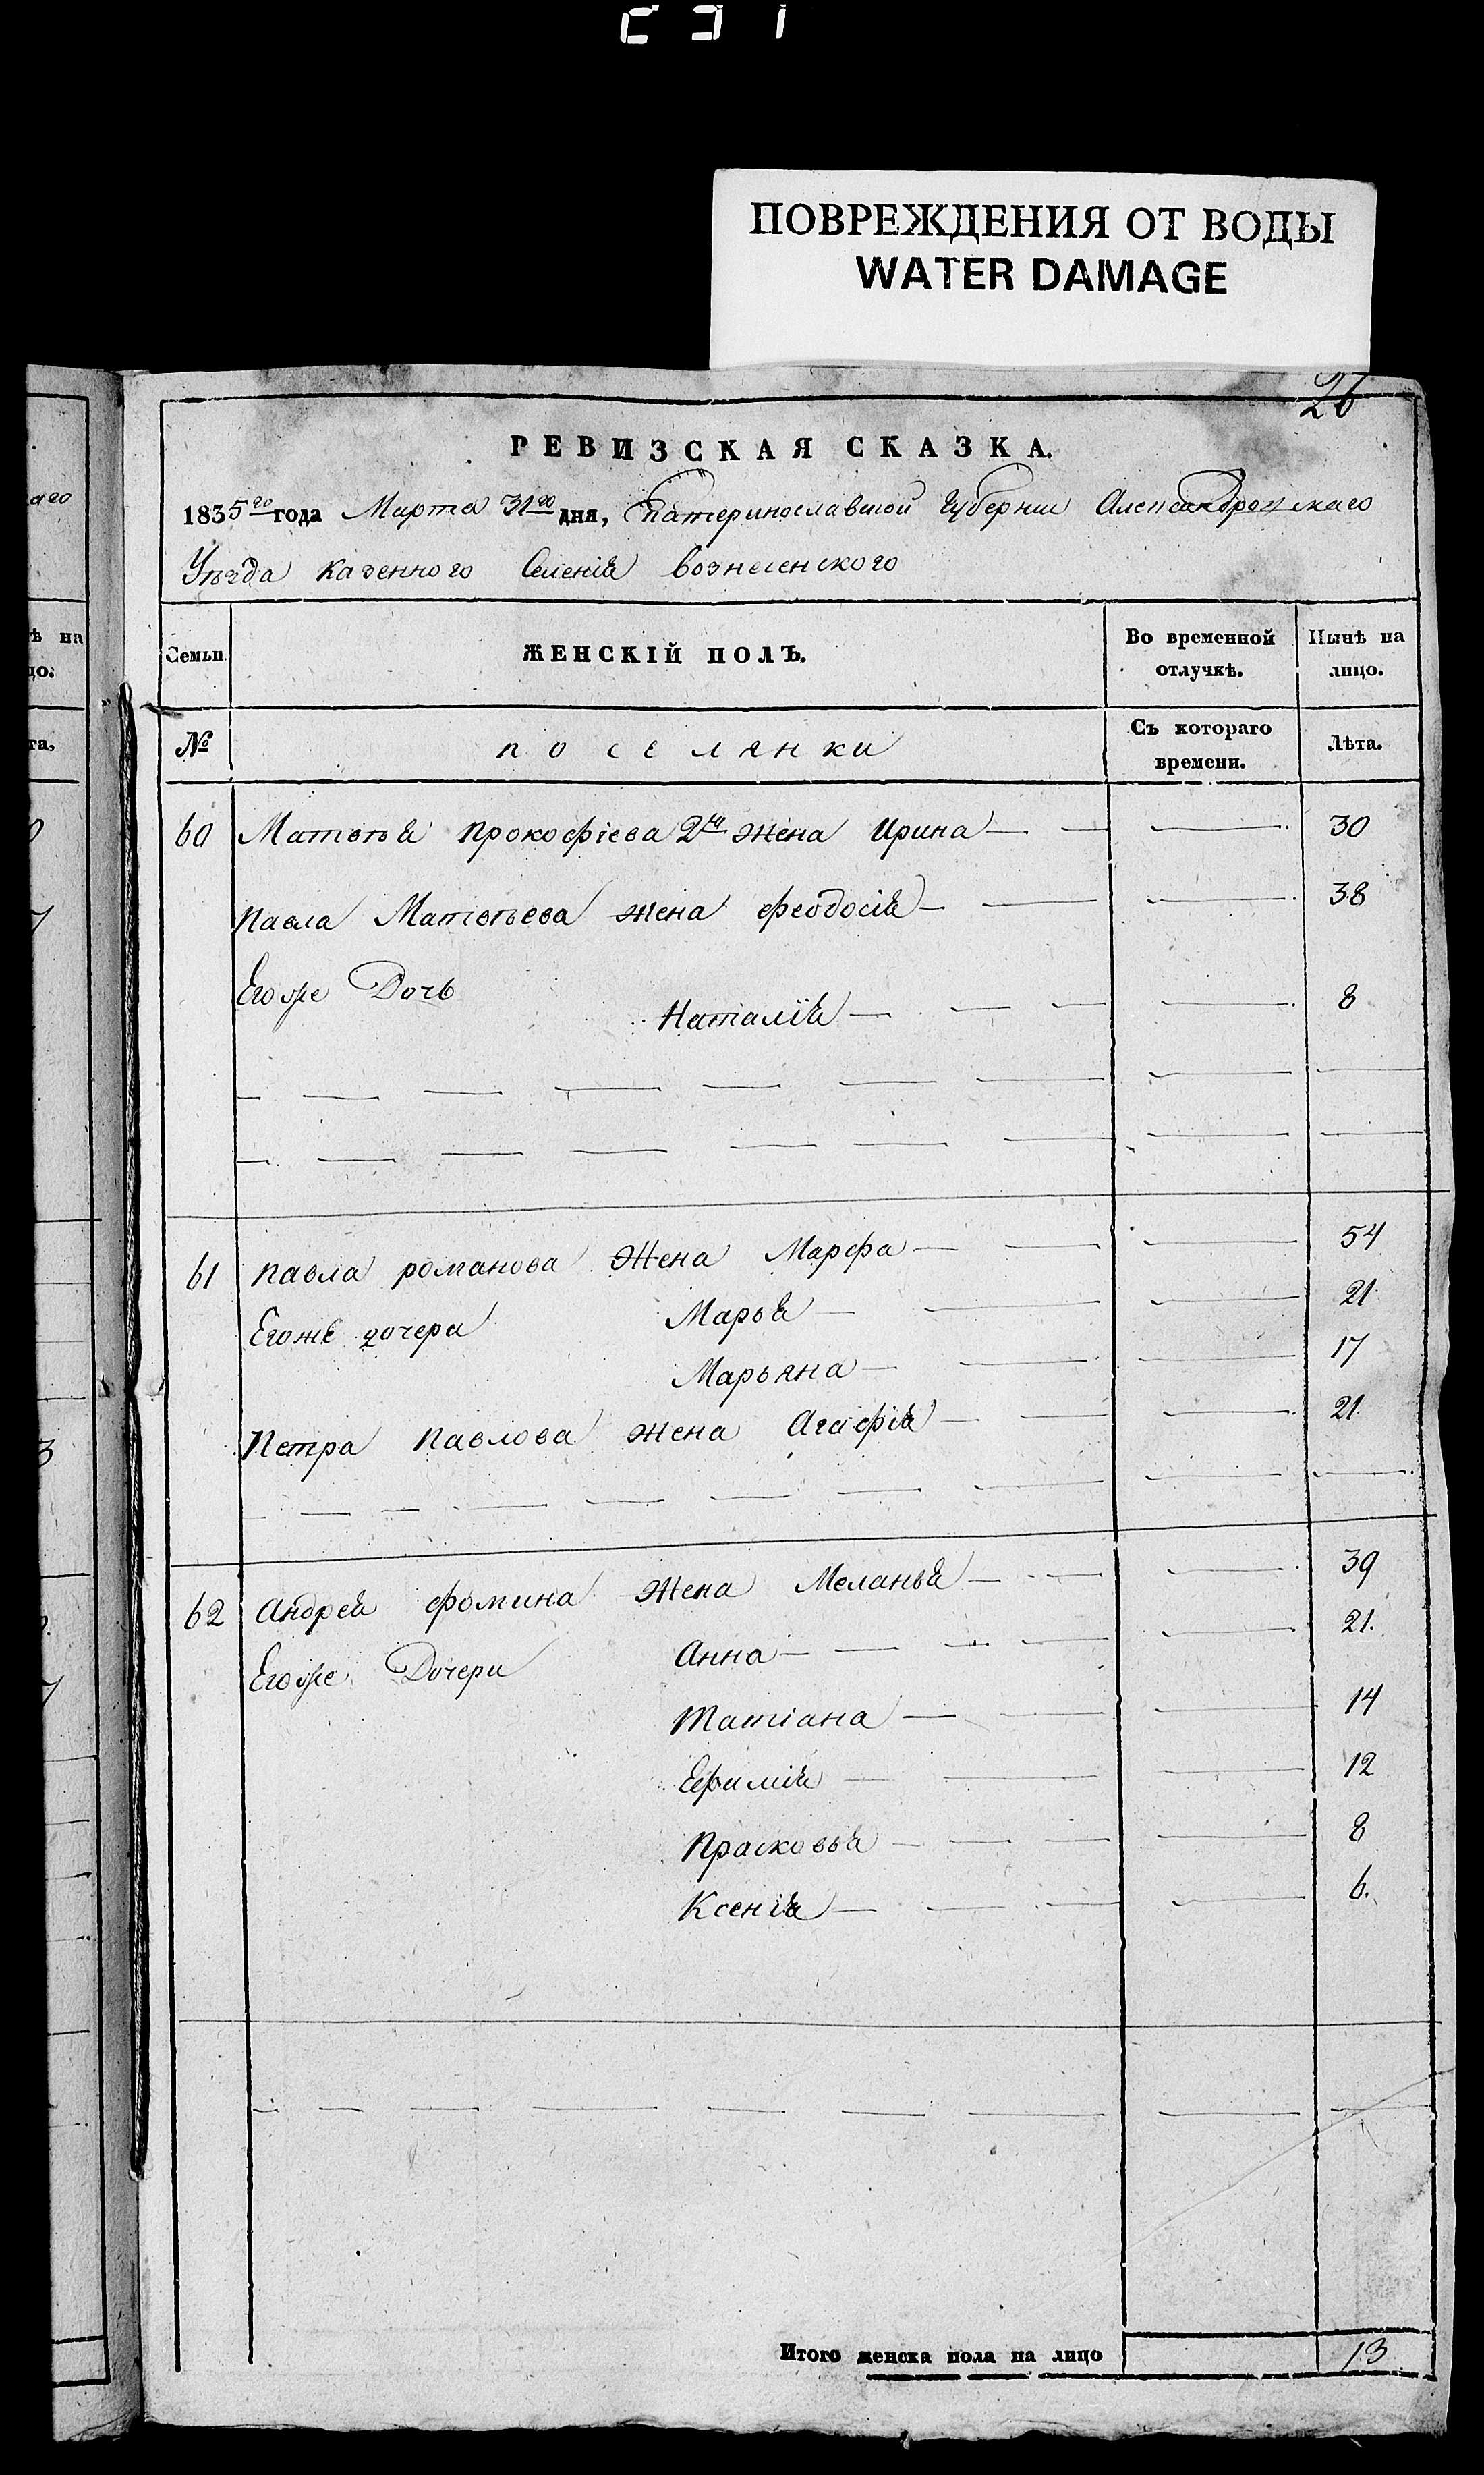 ПОВРЕЖДЕНИЯ ОТ ВОДЫ
WATER DAMAGE
26
РЕВИЗСКАЯ СКАЗКА.
1835го года Марта 31го дня, Екатеринославской Губернии Александровскаго
Уезда казенного Селения вознесенского
Семьи. ЖЕНСКІЙ ПОЛЪ. Во временной отлучкѣ. Нынѣ на лицо.
№ поселянки Съ котораго времени. Лѣта.
60 Матвѣя Прокофіева 2я жена Ирина 30
Павла Матвѣева жена Феодосія 38
Егоже Дочь
Наталія 8
61 Павла романова Жена Марфа 54
Егоже дочери Марья 21
Марьяна 17
Петра Павлова жена Агафія 21
62 Андрея Фомина Жена Меланья 39
Егоже Дочери Анна 21.
Татіана 14
Ефимія 12
Прасковья 8
Ксенія 6.
Итого женска пола на лицо 13